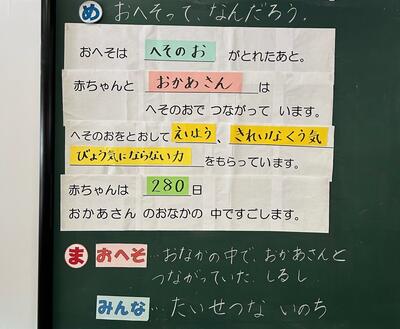 め おへそって、なんだろう。
おへそは へそのお がとれたあと。
赤ちゃんと おかあさん は
へそのおで つながって います。
へそのおをとおして えいよう、きれいなくう気
びょう気にならない力 をもらっています。
赤ちゃんは 280 日
おかあさん のおなかの 中ですごします。
ま おへそ…おなかの中で、おかあさんと
つながっていた しるし
みんな…たいせつな いのち